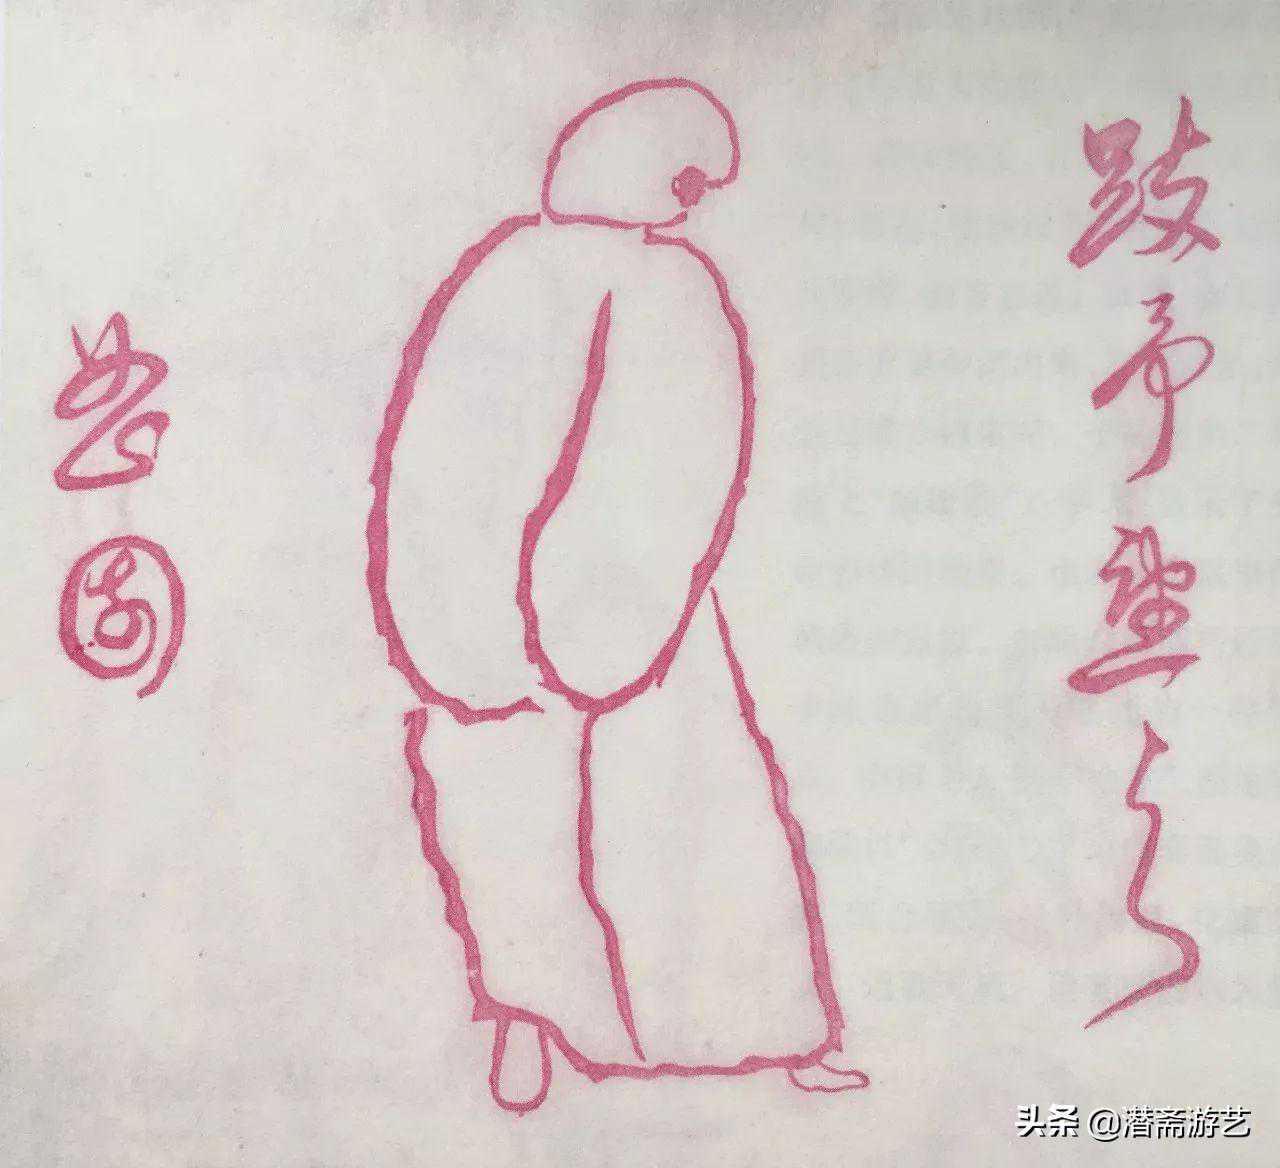 跂予望之
曲園
头条 @潜斋游艺